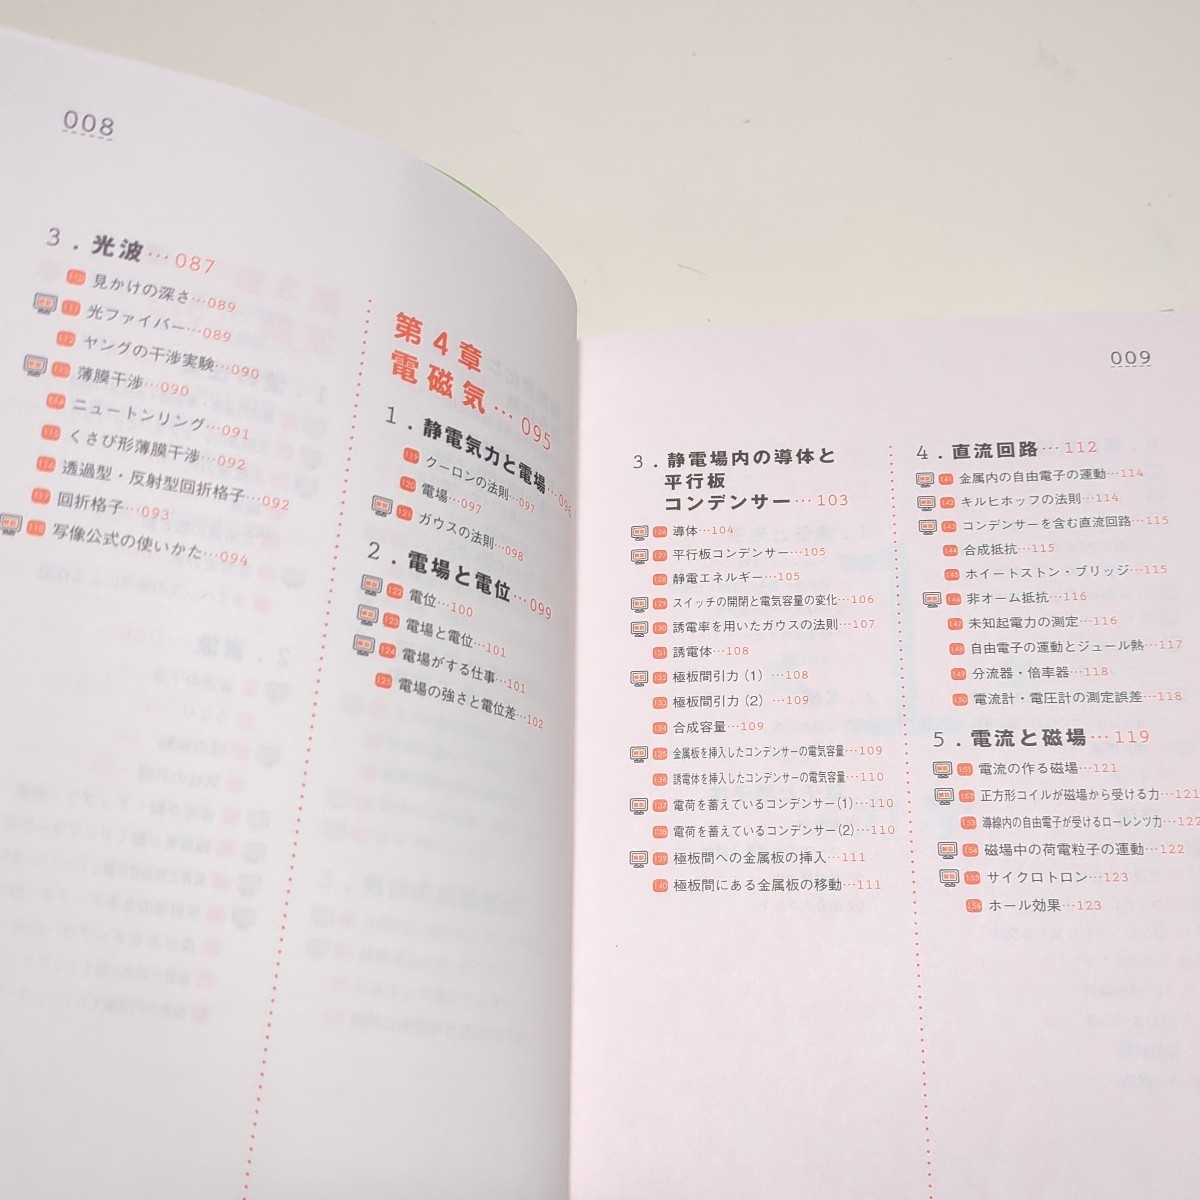 008
3.光波…087
110 見かけの深さ…089
111 光ファイバー…089
112 ヤングの干渉実験…090
113 薄膜干渉…090
114 ニュートンリング…091
115 くさび形薄膜干渉…092
116 透過型・反射型回折格子…092
117 回折格子…093
118 写像公式の使いかた…094
第4章
電磁気…095
1.静電気力と電場…096
119 クーロンの法則…097
120 電場…097
121 ガウスの法則…098
2.電場と電位…099
122 電位…100
123 電場と電位…101
124 電場がする仕事…101
125 電場の強さと電位差…102
009
3.静電場内の導体と
平行板
コンデンサー…103
126 導体…104
127 平行板コンデンサー…105
128 静電エネルギー…105
129 スイッチの開閉と電気容量の変化…106
130 誘電率を用いたガウスの法則…107
131 誘電体…108
132 極板間引力(1)…108
133 極板間引力(2)…109
134 合成容量…109
135 金属板を挿入したコンデンサーの電気容量…109
136 誘電体を挿入したコンデンサーの電気容量…110
137 電荷を蓄えているコンデンサー(1)…110
138 電荷を蓄えているコンデンサー(2)…110
139 極板間への金属板の挿入…111
140 極板間にある金属板の移動…111
4.直流回路…112
141 金属内の自由電子の運動…114
142 キルヒホッフの法則…114
143 コンデンサーを含む直流回路…115
144 合成抵抗…115
145 ホイートストン・ブリッジ…115
146 非オーム抵抗…116
147 未知起電力の測定…116
148 自由電子の運動とジュール熱…117
149 分流器・倍率器…118
150 電流計・電圧計の測定誤差…118
5.電流と磁場…119
151 電流の作る磁場…121
152 正方形コイルが磁場から受ける力…121
153 導線内の自由電子が受けるローレンツ力…122
154 磁場中の荷電粒子の運動…122
155 サイクロトロン…123
156 ホール効果…123